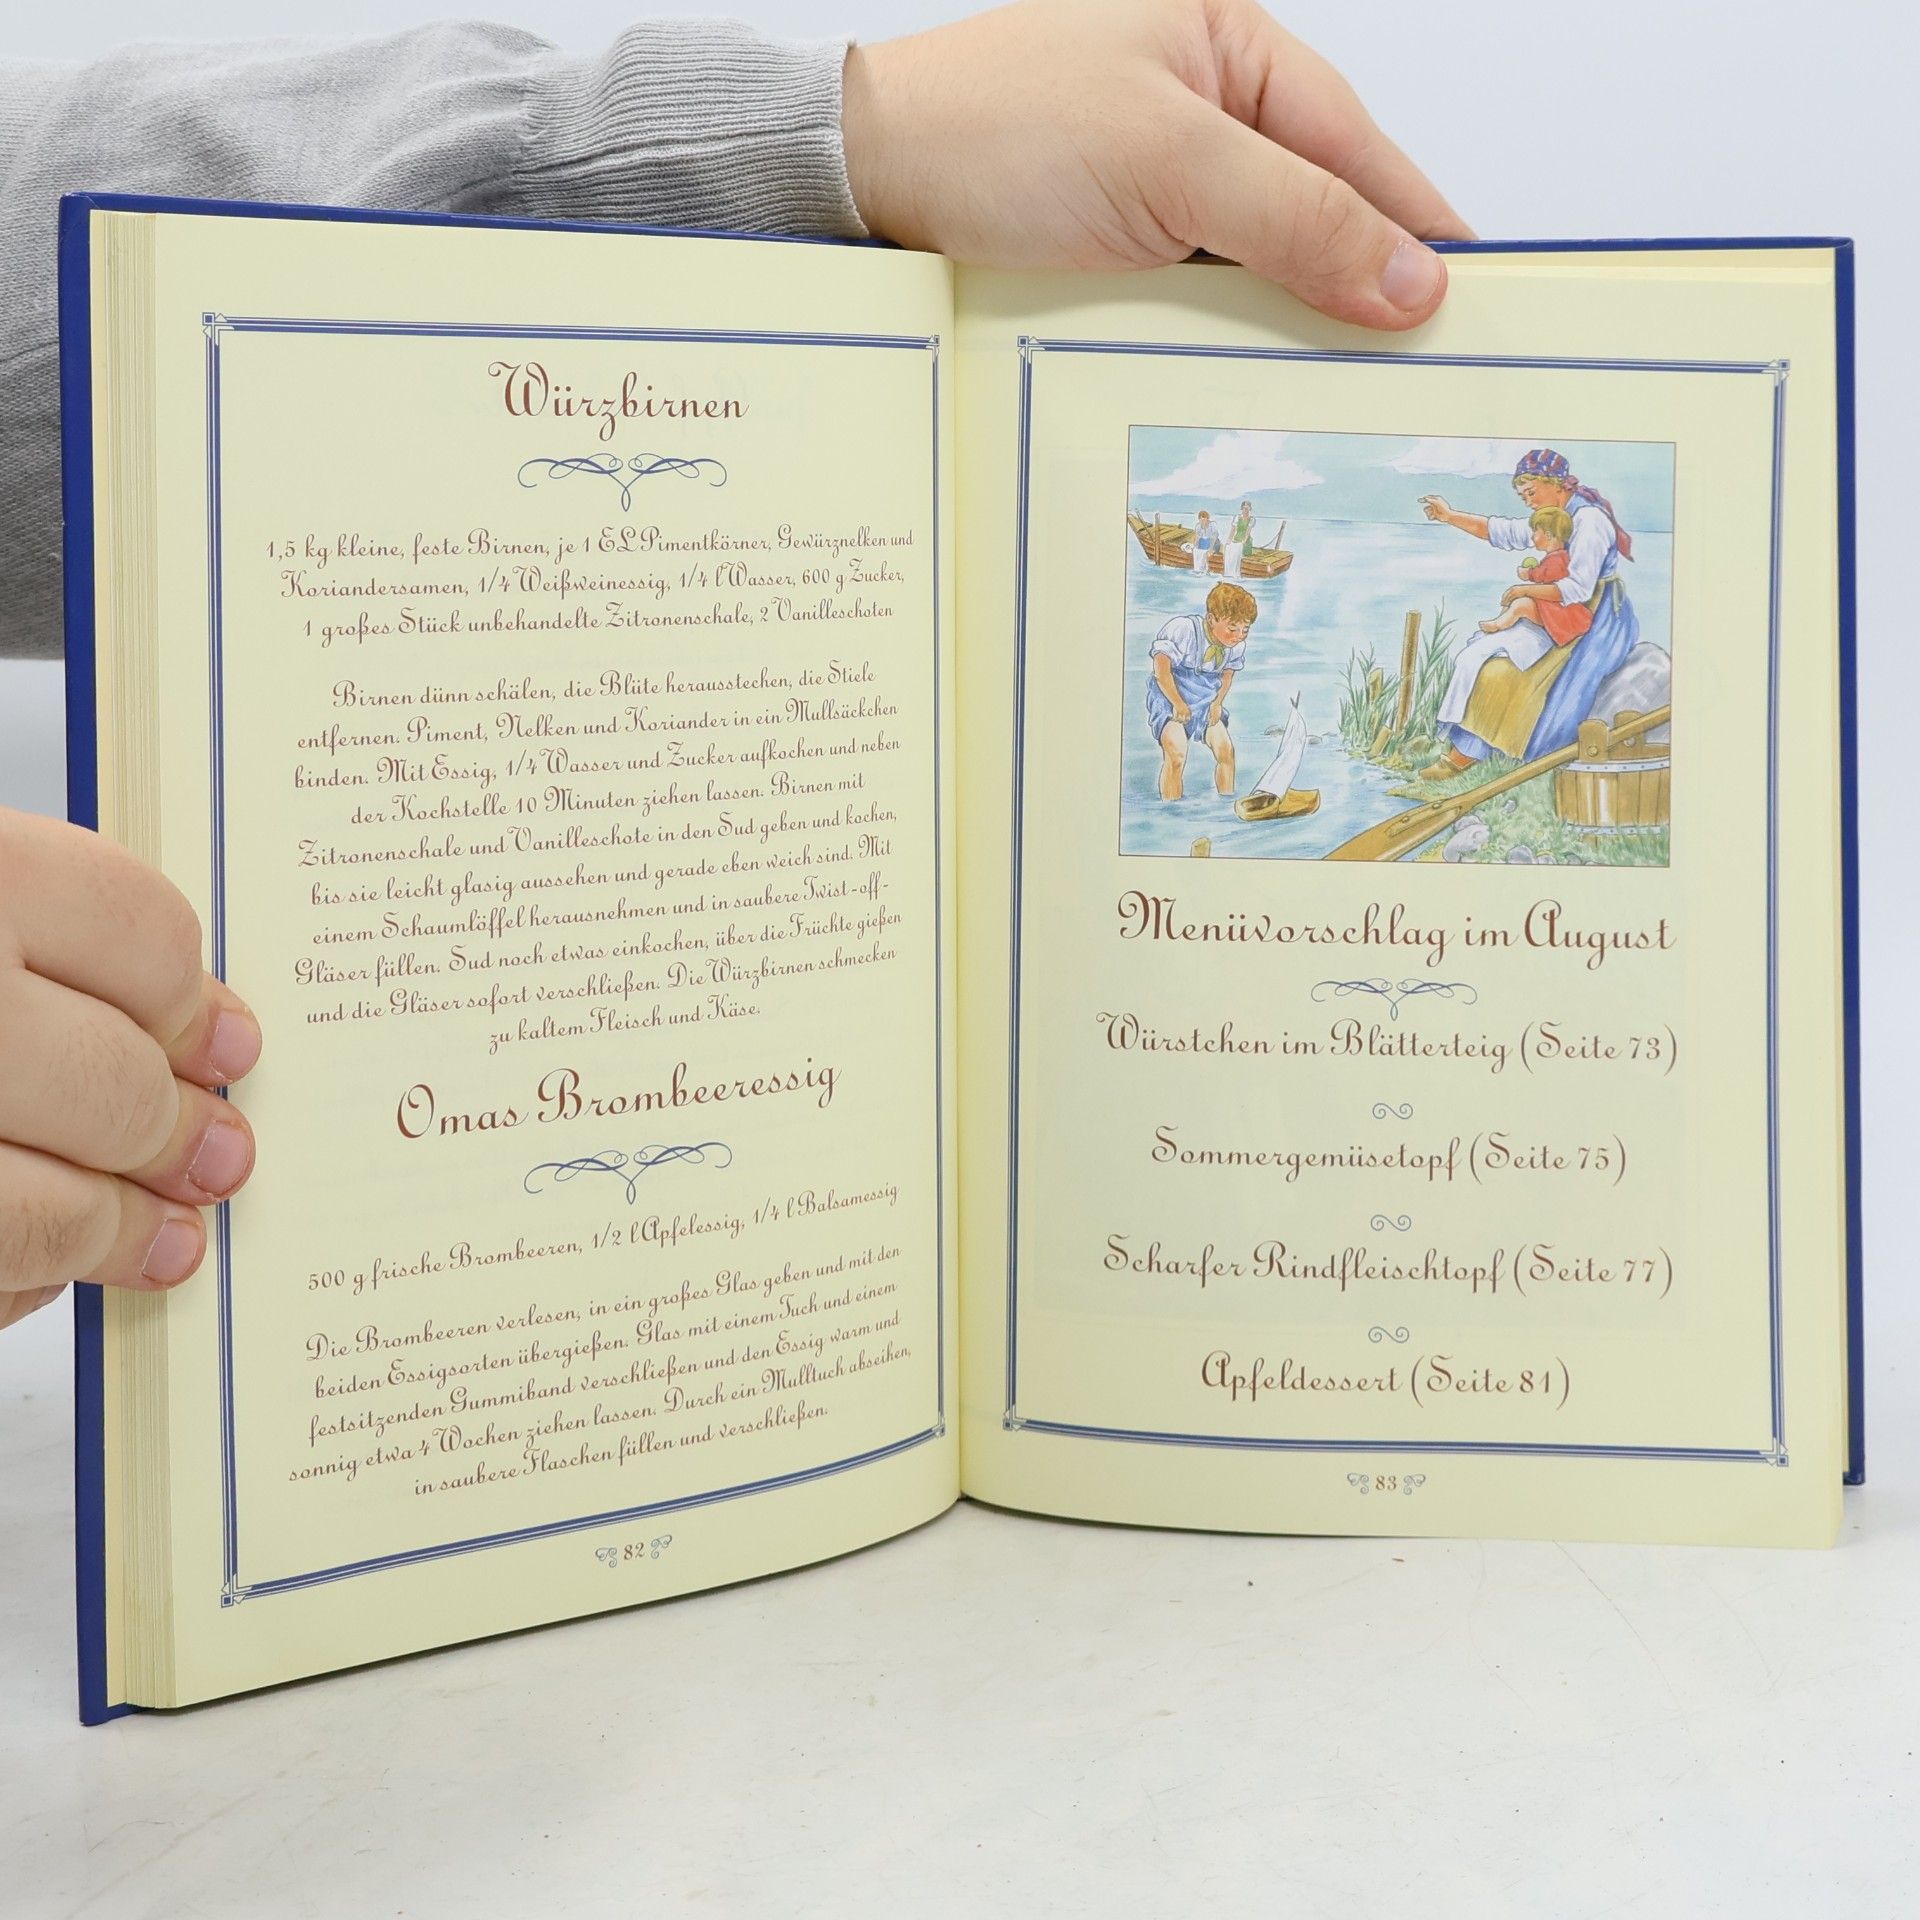 Würzbirnen
1,5 kg kleine, feste Birnen, je 1 EL Pimentkörner, Gewürznelken und
Koriandersamen, 1/4 Weißweinessig, 1/4 l Wasser, 600 g Zucker,
1 großes Stück unbehandelte Zitronenschale, 2 Vanilleschoten
Birnen dünn schälen, die Blüte herausstechen, die Stiele
entfernen. Piment, Nelken und Koriander in ein Mullsäckchen
binden. Mit Essig, 1/4 Wasser und Zucker aufkochen und neben
der Kochstelle 10 Minuten ziehen lassen. Birnen mit
Zitronenschale und Vanilleschote in den Sud geben und kochen,
bis sie leicht glasig aussehen und gerade eben weich sind. Mit
einem Schaumlöffel herausnehmen und in saubere Twist-off-
Gläser füllen. Sud noch etwas einkochen, über die Früchte gießen
und die Gläser sofort verschließen. Die Würzbirnen schmecken
zu kaltem Fleisch und Käse.
Omas Brombeeressig
500 g frische Brombeeren, 1/2 l Apfelessig, 1/4 l Balsamessig
Die Brombeeren verlesen, in ein großes Glas geben und mit den
beiden Essigsorten übergießen. Glas mit einem Tuch und einem
festsitzenden Gummiband verschließen und den Essig warm und
sonnig etwa 4 Wochen ziehen lassen. Durch ein Mulltuch abseihen,
in saubere Flaschen füllen und verschließen.
82
Menüvorschlag im August
Würstchen im Blätterteig (Seite 73)
Sommergemüsetopf (Seite 75)
Scharfer Rindfleischtopf (Seite 77)
Apfeldessert (Seite 81)
83